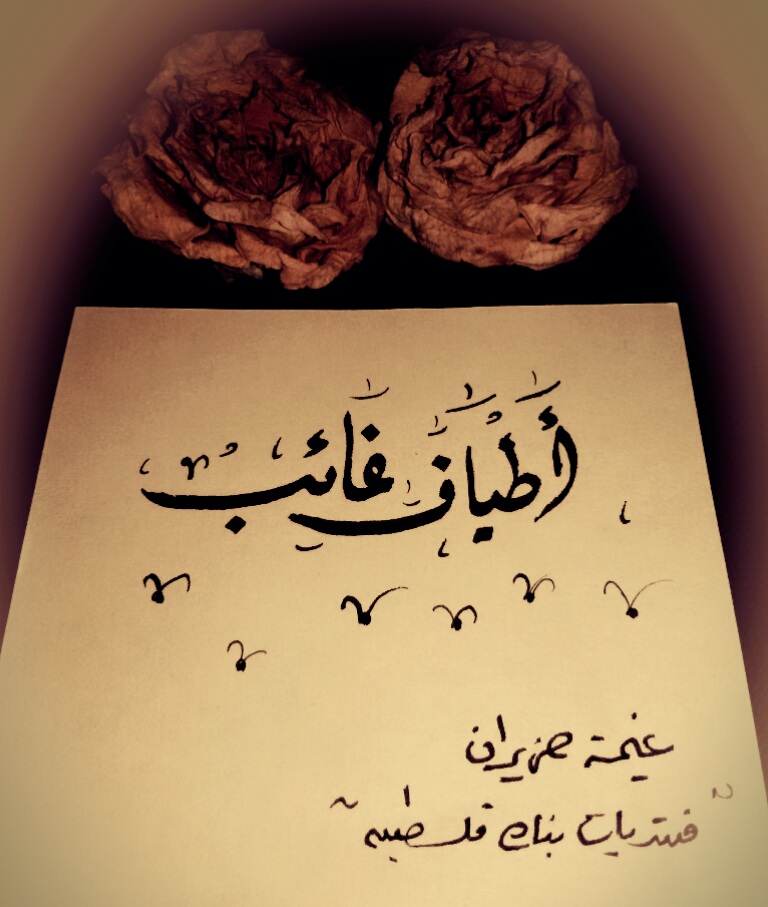 أطياف غائب
غيمة حزيران
"منتديات بنات فلسطين"